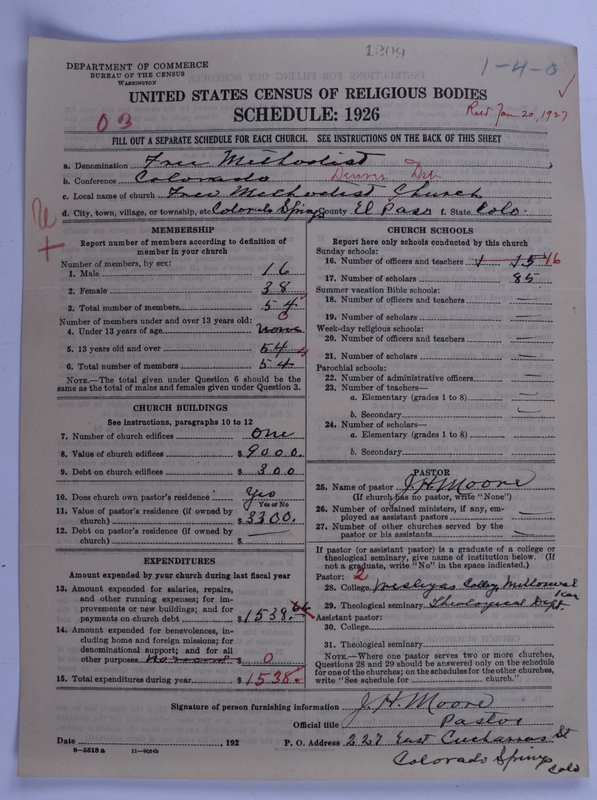 1309
1-4-0
DEPARTMENT OF COMMERCE
BUREAU OF THE CENSUS
WASHINGTON
UNITED STATES CENSUS OF RELIGIOUS BODIES
SCHEDULE: 1926
Recd Jan 20, 1927
03
FILL OUT A SEPARATE SCHEDULE FOR EACH CHURCH. SEE INSTRUCTIONS ON THE BACK OF THIS SHEET
a. Denomination Free Methodist
b. Conference Colorado Denver Dist
c. Local name of church Free Methodist Church
d. City, town, village, or township, etc. Colorado Springs County El Paso f. State Colo.
MEMBERSHIP
Report number of members according to definition of
member in your church
Number of members, by sex:
1. Male 16
2. Female 38
3. Total number of members 54
Number of members under and over 13 years old:
4. Under 13 years of age none 0
5. 13 years old and over 54
6. Total number of members 54
NOTE.—The total given under Question 6 should be
same as the total of males and females given under Question 3.
CHURCH BUILDINGS
See instructions, paragraphs 10 to 12
7. Number of church edifices One
8. Value of church edifices $9000.
9. Debt on church edifices $300
10. Does church own pastor's residence Yes
Yes or No
11. Value of pastor's residence (if owned by
church) $3300.
12. Debt on pastor's residence (if owned by
church) $
EXPENDITURES
Amount expended by your church during last fiscal year
13. Amount expended for salaries, repairs,
and other running expenses; for im-
provements or new buildings; and for
payments on church debt $1538.66
14. Amount expended for benevolences, in-
cluding home and foreign missions; for
denominational support; and for all
other purposes $ 0
15. Total expenditures during year $1538.
CHURCH SCHOOLS
Report here only schools conducted by this church
Sunday schools:
16. Number of officers and teachers 15 16
17. Number of scholars 85
Summer vacation Bible schools:
18. Number of officers and teachers —
19. Number of scholars —
Week-day religious schools:
20. Number of officers and teachers —
21. Number of scholars —
Parochial schools:
22. Number of administrative officers —
23. Number of teachers—
a. Elementary (grades 1 to 8) —
b. Secondary —
24. Number of scholars—
a. Elementary (grades 1 to 8)
b. Secondary
PASTOR
25. Name of pastor J. H. Moore
(If church has no pastor, write "None")
26. Number of ordained ministers, if any, em-
ployed as assistant pastors —
27. Number of other churches served by the
pastor or his assistants —
If pastor (or assistant pastor) is a graduate of a college or
theological seminary, give name of institution below. (If
not a graduate, write "No" in the space indicated.)
Pastor: 2
28. College Wesleyan Colleg Miltonvale
Kan
29. Theological seminary Theological Dept.
Assistant pastor:
30. College
31. Theological seminary
NOTE.—Where one pastor serves two or more churches,
Questions 28 and 29 should be answered only on the schedule
for one of the churches; on the schedules for the other churches,
write "See schedule for church."
Signature of person furnishing information J. H. Moore
Official title Pastor
Date , 192 P. O. Address 227 East Cucharras St
8-5518a 11-9056
Colorado Springs
Colo